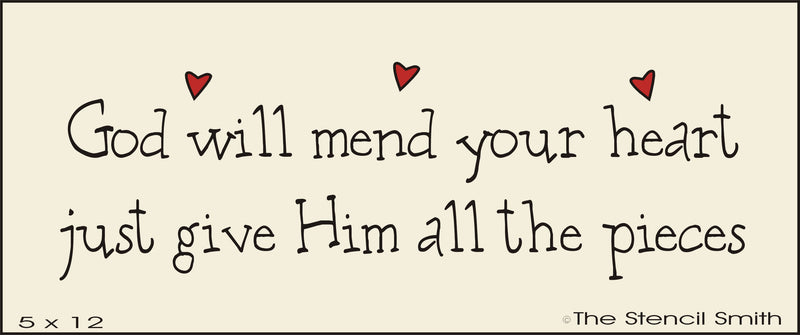 God will mend your heart
just give Him all the pieces
5 x 12
©The Stencil Smith